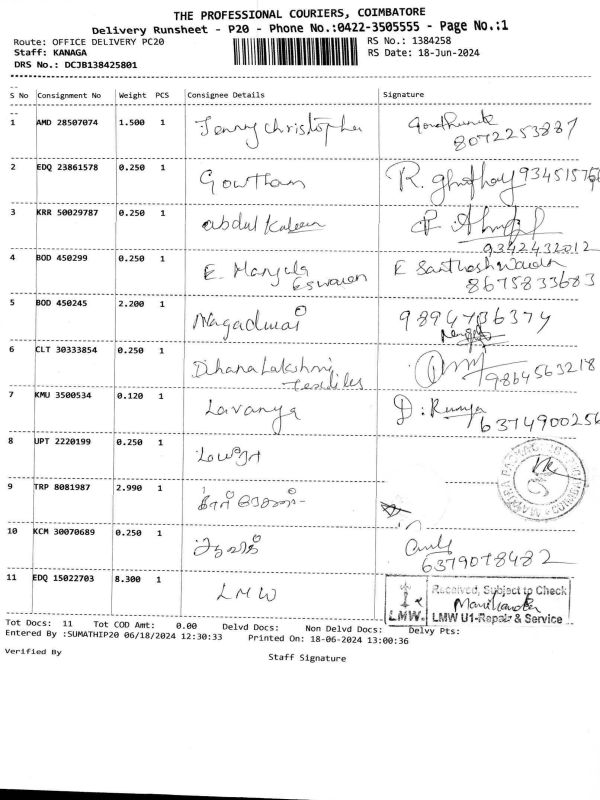 THE PROFESSIONAL COURIERS, COIMBATORE
Delivery Runsheet - P20 - Phone No.:0422-3505555 - Page No.:1
Route: OFFICE DELIVERY PC20 RS No.: 1384258
Staff: KANAGA RS Date: 18-Jun-2024
DRS No.: DCJB138425801
S No Consignment No Weight PCS Consignee Details Signature
1 AMD 28507074 1.500 1 Jenny christopher
8072253887
2 EDQ 23861578 0.250 1 Gowtham R.
3 KRR 50029787 0.250 1 abdul Kaleem
9342432012
4 BOD 450299 0.250 1 E. Manjula E Santhosh
Eswaran 8675833683
5 BOD 450245 2.200 1
6 CLT 30333854 0.250 1 Dhana Lakshmi
Textiles 9864563218
7 KMU 3500534 0.120 1 Lavanya D. Ramya
6374900256
8 UPT 2220199 0.250 1
9 TRP 8081987 2.990 1
10 KCM 30070689 0.250 1
6379078482
11 EDQ 15022703 8.300 1 LMW Received, Subject to Check
LMW. LMW U1-Repair & Service
Tot Docs: 11 Tot COD Amt: 0.00 Delvd Docs: Non Delvd Docs: Delvy Pts:
Entered By :SUMATHIP20 06/18/2024 12:30:33 Printed On: 18-06-2024 13:00:36
Verified By Staff Signature